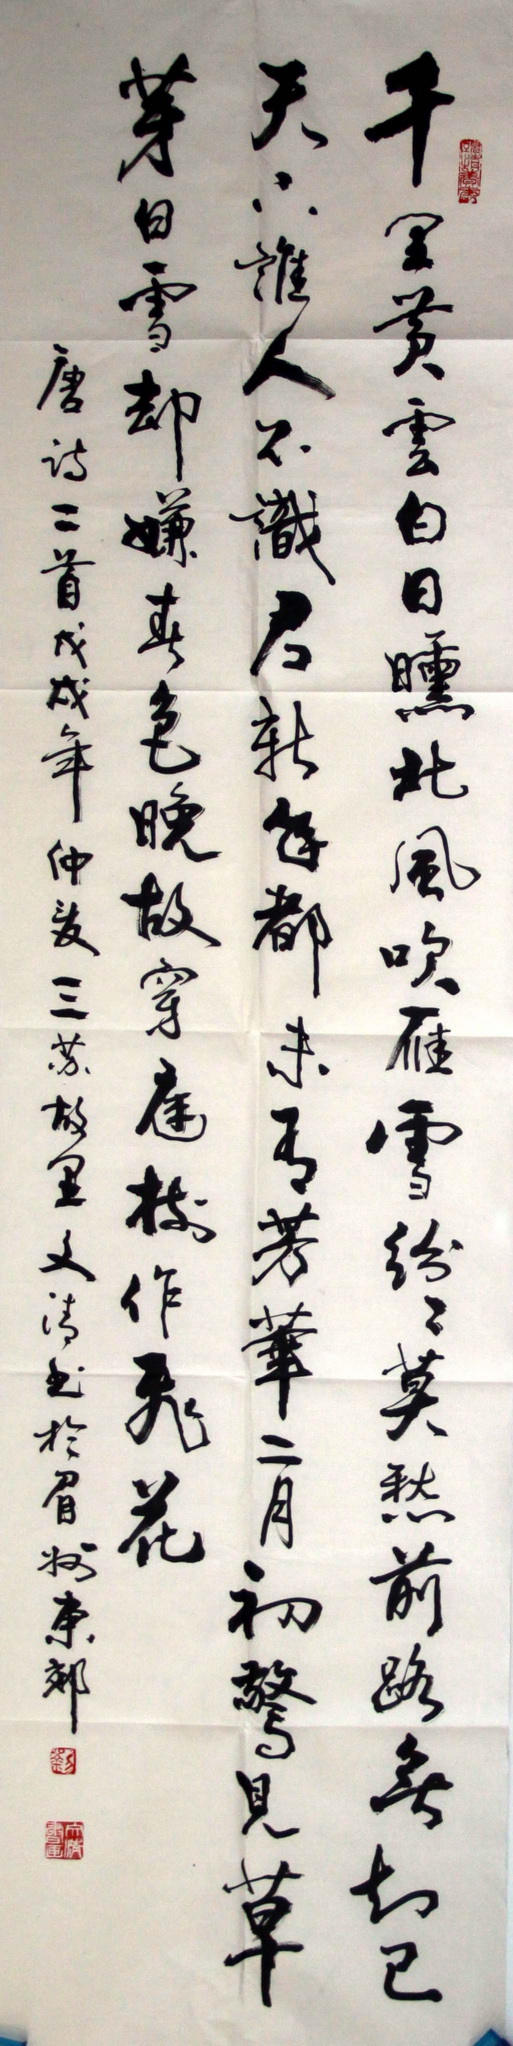 千里黄雲白日曛北風吹雁雪紛〻莫愁前路無知己
天下誰人不識君新年都未有芳華二月初驚見草
芽白雪却嫌春色晚故穿庭樹作飛花
唐詩二首戊戌年仲夏三苏故里文清书於眉州東郊